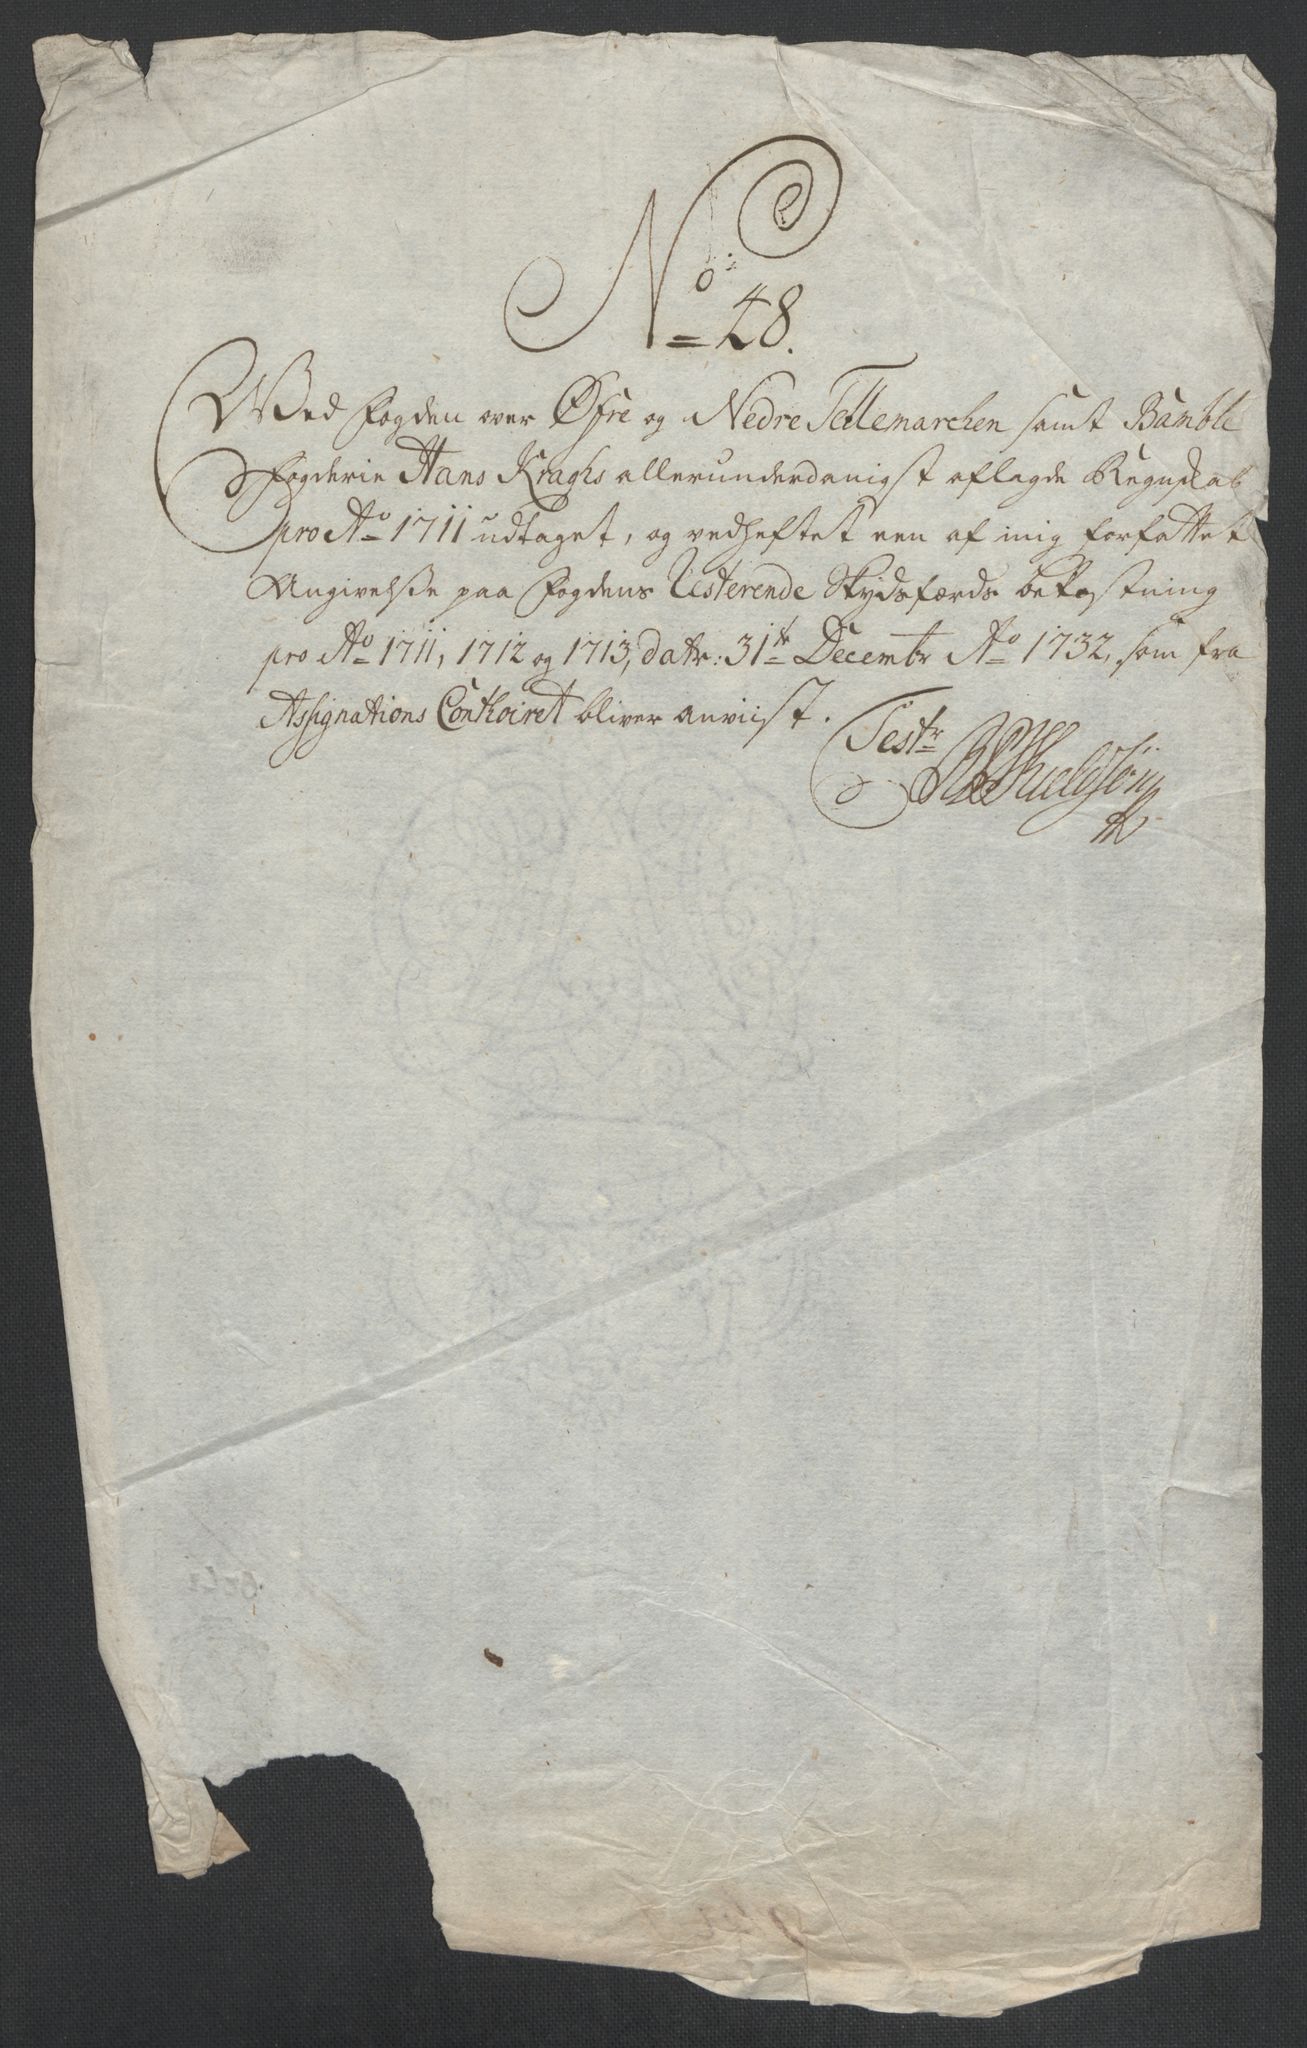 No 48.
Wed Fogden over Øfre og Nedre Tellemarchen samt Bamble
Fogderie Hans Kraghs allerunderdanigst aflagde Regnskab
pro Ao 1711 udtaget, og vedheftet een af mig forfattet
Angivelsße paa Fogdens Resterende Skydsfærds bekostning
pro Ao 1711, 1712 og 1713, datr: 31te Decembr Ao 1732, som fra
Assignations Conthoiret bliver anviist.
Testr